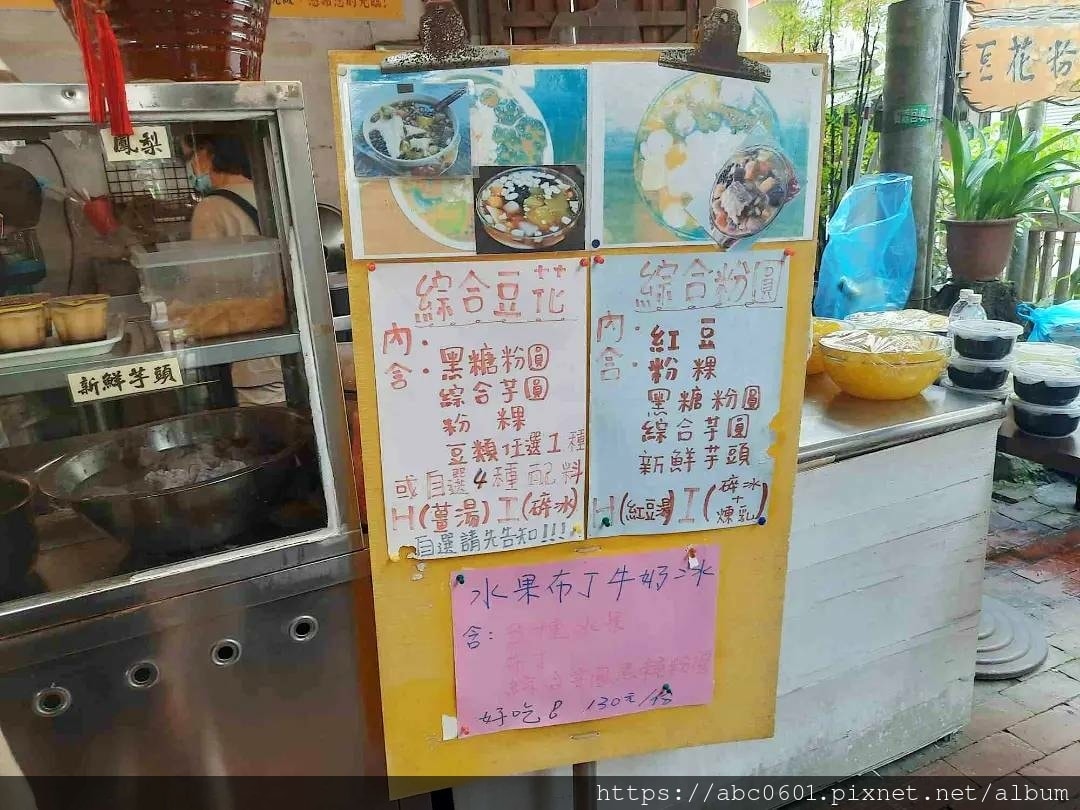 豆花粉
鳳梨
新鮮芋頭
綜合豆花
內含：
黑糖粉圓
綜合芋圓
粉粿
豆類任選1種
或自選4種配料
H(薑湯) I(碎冰)
自選請先告知!!!
綜合粉圓
內含：
紅豆
粉粿
黑糖粉圓
綜合芋圓
新鮮芋頭
H(紅豆湯) I(碎冰+煉乳)
水果布丁牛奶冰
含：
水果
布丁
綜合芋圓黑糖粉圓
好吃 130元/份
https://abc0601.pixnet.net/album